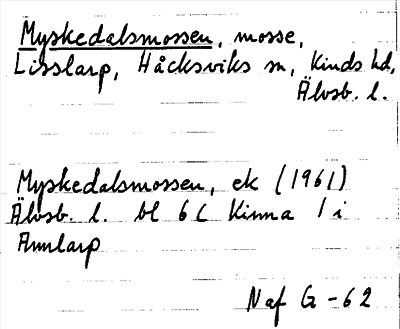 Myskedalsmossen, mosse,
Lisslarp, Håcksviks sn, Kinds hd,
Älvsb. l.
Myskedalsmossen, ek (1961)
Älvsb. l. bl 6 C Kinna / i
Annlarp
Naf G-62